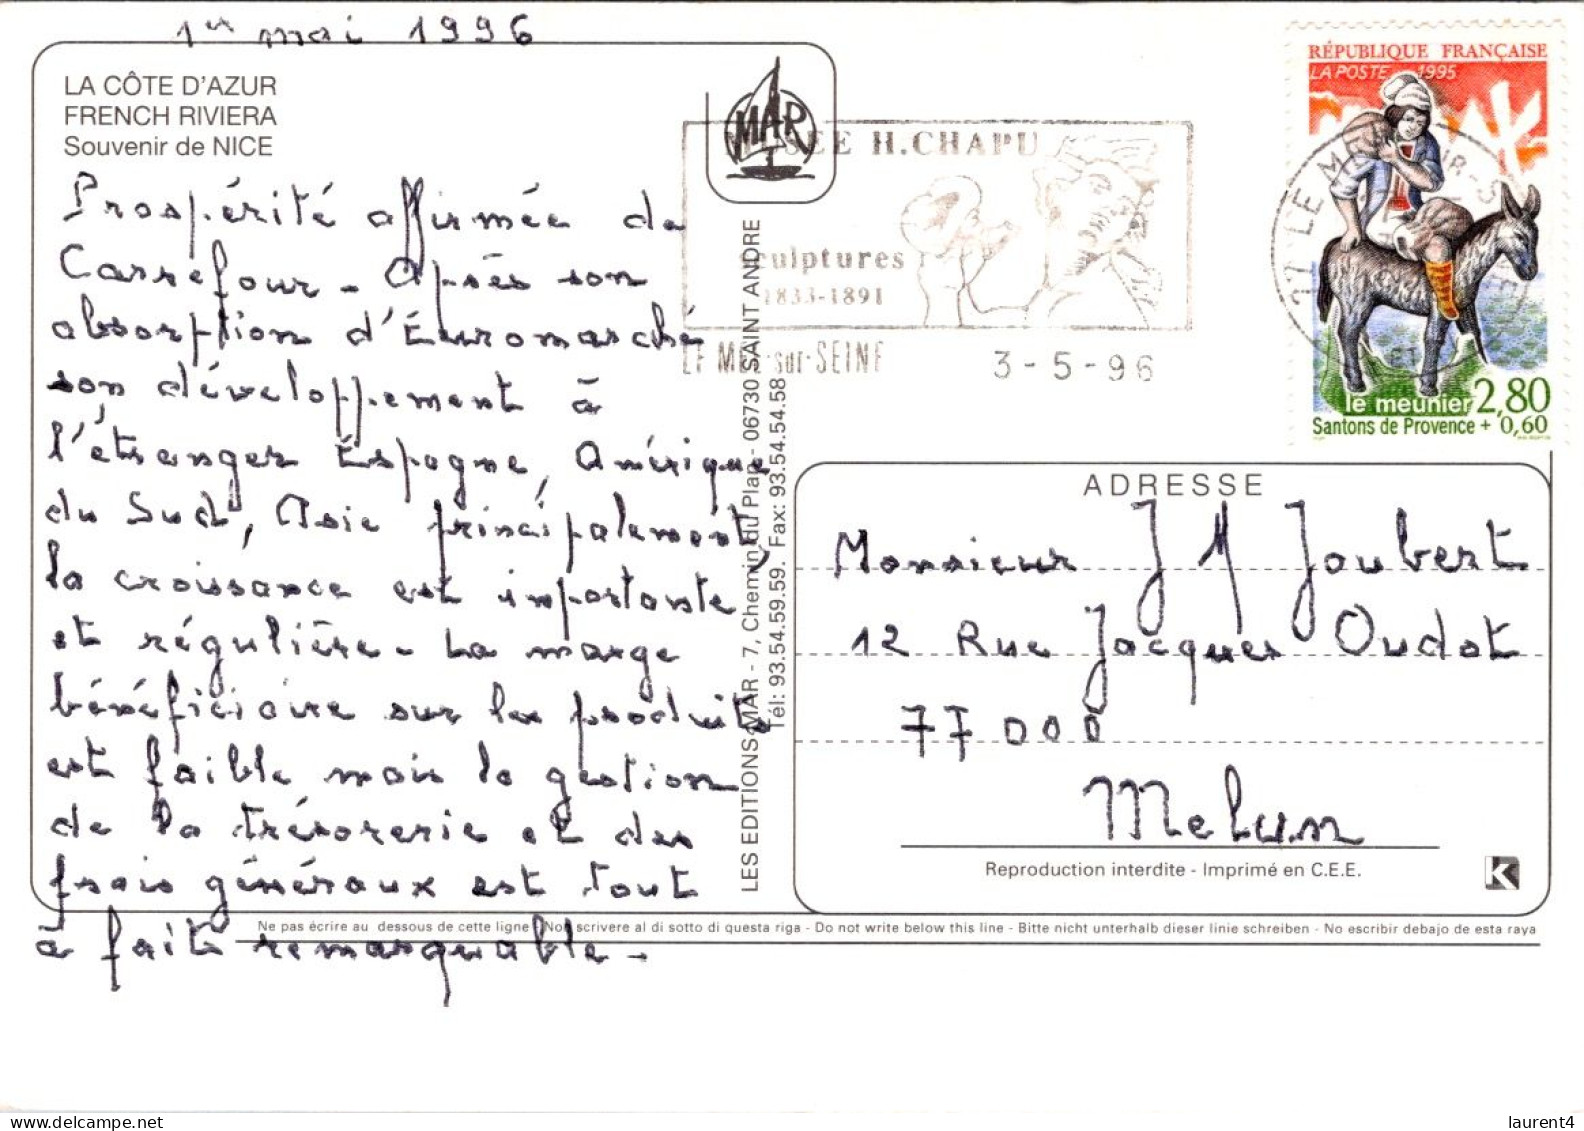 1er mai 1996
LA CÔTE D'AZUR
FRENCH RIVIERA
Souvenir de NICE
Prospérité affirmée de
Carrefour - Après son
absorption d'Euromarché
son développement à
l'étranger Espagne, Amérique
du Sud, Asie principalement,
la croissance est importante
et régulière - La marge
bénéficiaire sur les produits
est faible mais la gestion
de la trésorerie et des
frais généraux est tout
à fait remarquable -
MAR
LES EDITIONS MAR - 7, Chemin du Plan - 06730 SAINT ANDRE
Tél: 93.54.59.59. Fax: 93.54.54.58
MUSEE H.CHAPU
sculptures
1833-1891
LE MEE-sur-SEINE
3-5-96
77 LE MEE-SUR-SEINE
RÉPUBLIQUE FRANÇAISE
LA POSTE 1995
le meunier 2,80
Santons de Provence + 0,60
ADRESSE
Monsieur J M Joubert
12 Rue Jacques Oudot
77000
Melun
Reproduction interdite - Imprimé en C.E.E.
K
Ne pas écrire au dessous de cette ligne - Non scrivere al di sotto di questa riga - Do not write below this line - Bitte nicht unterhalb dieser linie schreiben - No escribir debajo de esta raya
laurent4